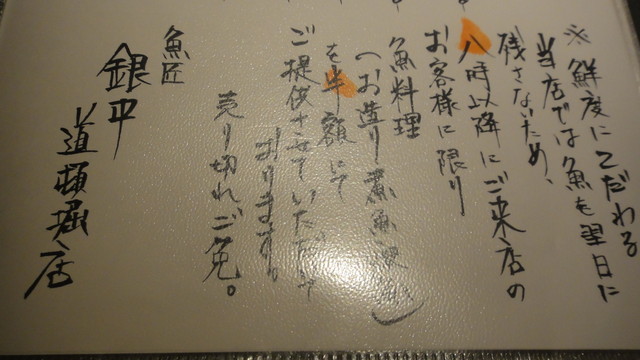 ※鮮度にこだわる
当店では魚を翌日に
残さないため、
八時以降にご来店の
お客様に限り
魚料理
(お造り 煮魚
を半額にて
ご提供させていただいて
おります。
売り切れご免。
魚匠
銀平
道頓堀店